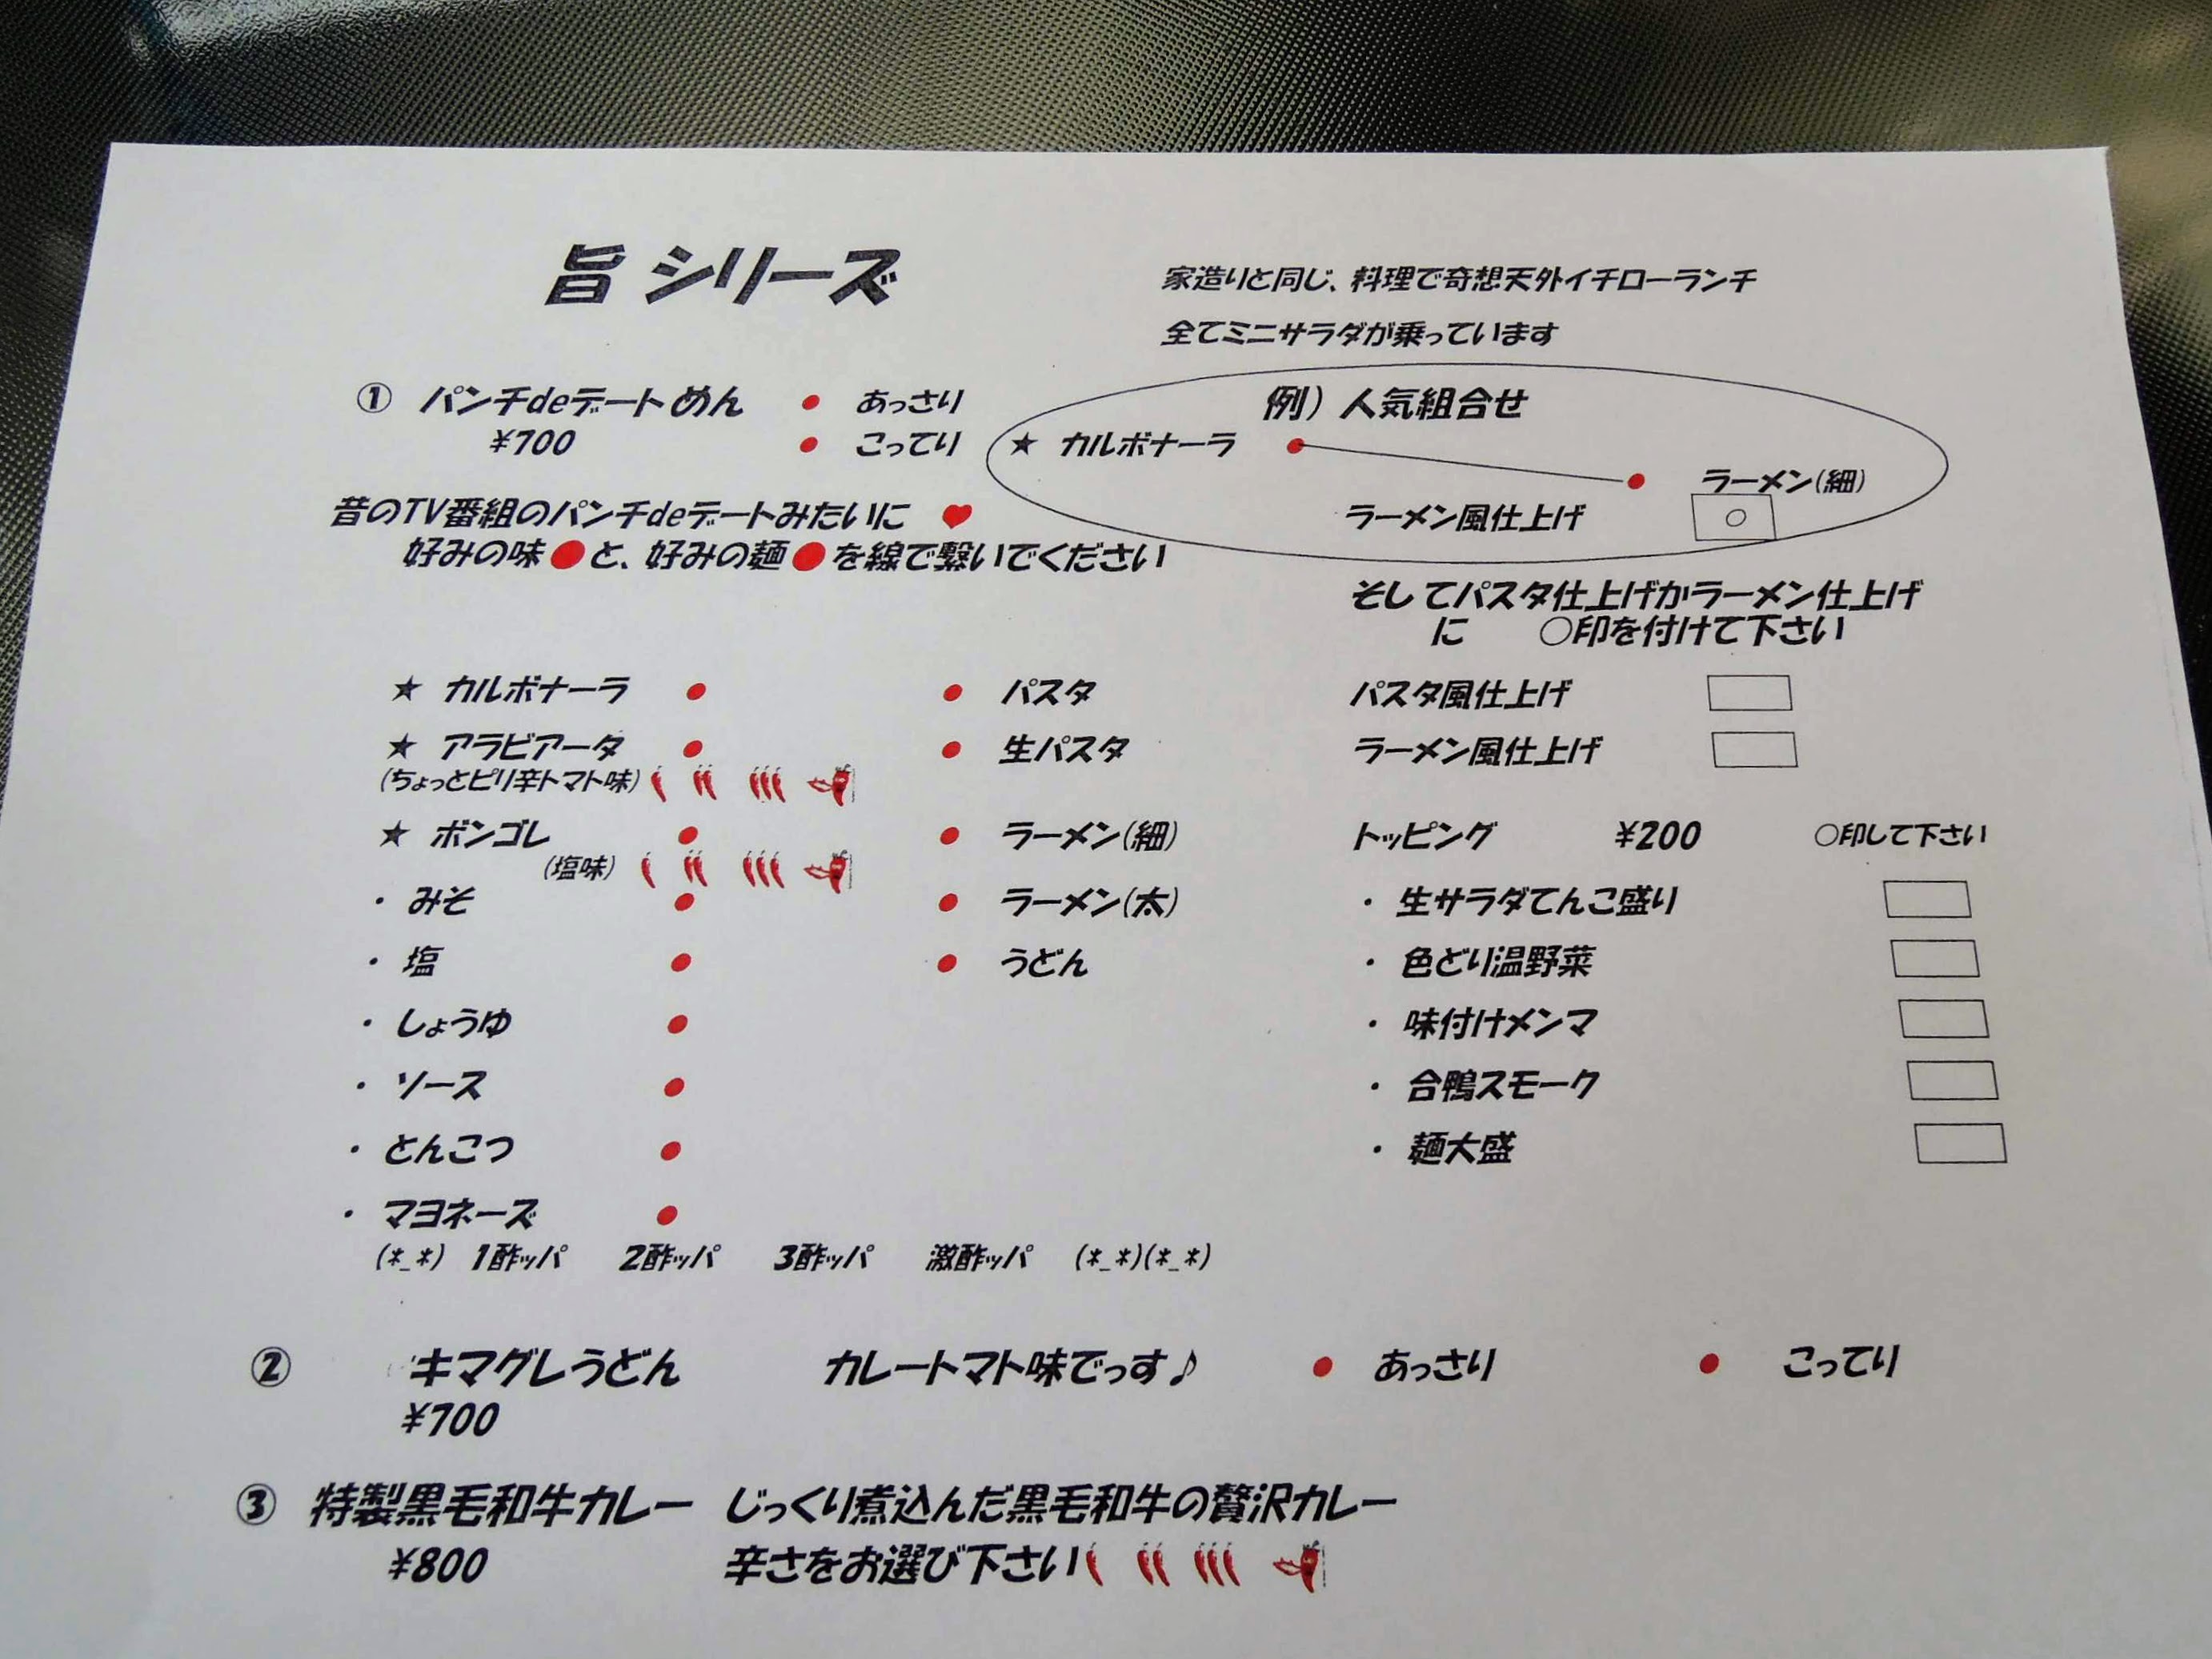 旨 シリーズ
家造りと同じ、料理で奇想天外イチローランチ
全てミニサラダが乗っています
① パンチdeデートめん ● あっさり
¥700 ● こってり
例）人気組合せ
★ カルボナーラ ●
● ラーメン(細)
ラーメン風仕上げ ○
昔のTV番組のパンチdeデートみたいに ♥
好みの味●と、好みの麺●を線で繋いでください
そしてパスタ仕上げかラーメン仕上げ
に ○印を付けて下さい
★ カルボナーラ ● ● パスタ
★ アラビアータ ● ● 生パスタ
(ちょっとピリ辛トマト味)
★ ボンゴレ ● ● ラーメン(細)
(塩味)
・ みそ ● ● ラーメン(太)
・ 塩 ● ● うどん
・ しょうゆ ●
・ ソース ●
・ とんこつ ●
・ マヨネーズ ●
(*_*) 1酢ッパ 2酢ッパ 3酢ッパ 激酢ッパ (*_*)(*_*)
パスタ風仕上げ
ラーメン風仕上げ
トッピング ¥200 ○印して下さい
・ 生サラダてんこ盛り
・ 色どり温野菜
・ 味付けメンマ
・ 合鴨スモーク
・ 麺大盛
② キマグレうどん カレートマト味でっす♪ ● あっさり ● こってり
¥700
③ 特製黒毛和牛カレー じっくり煮込んだ黒毛和牛の贅沢カレー
¥800 辛さをお選び下さい